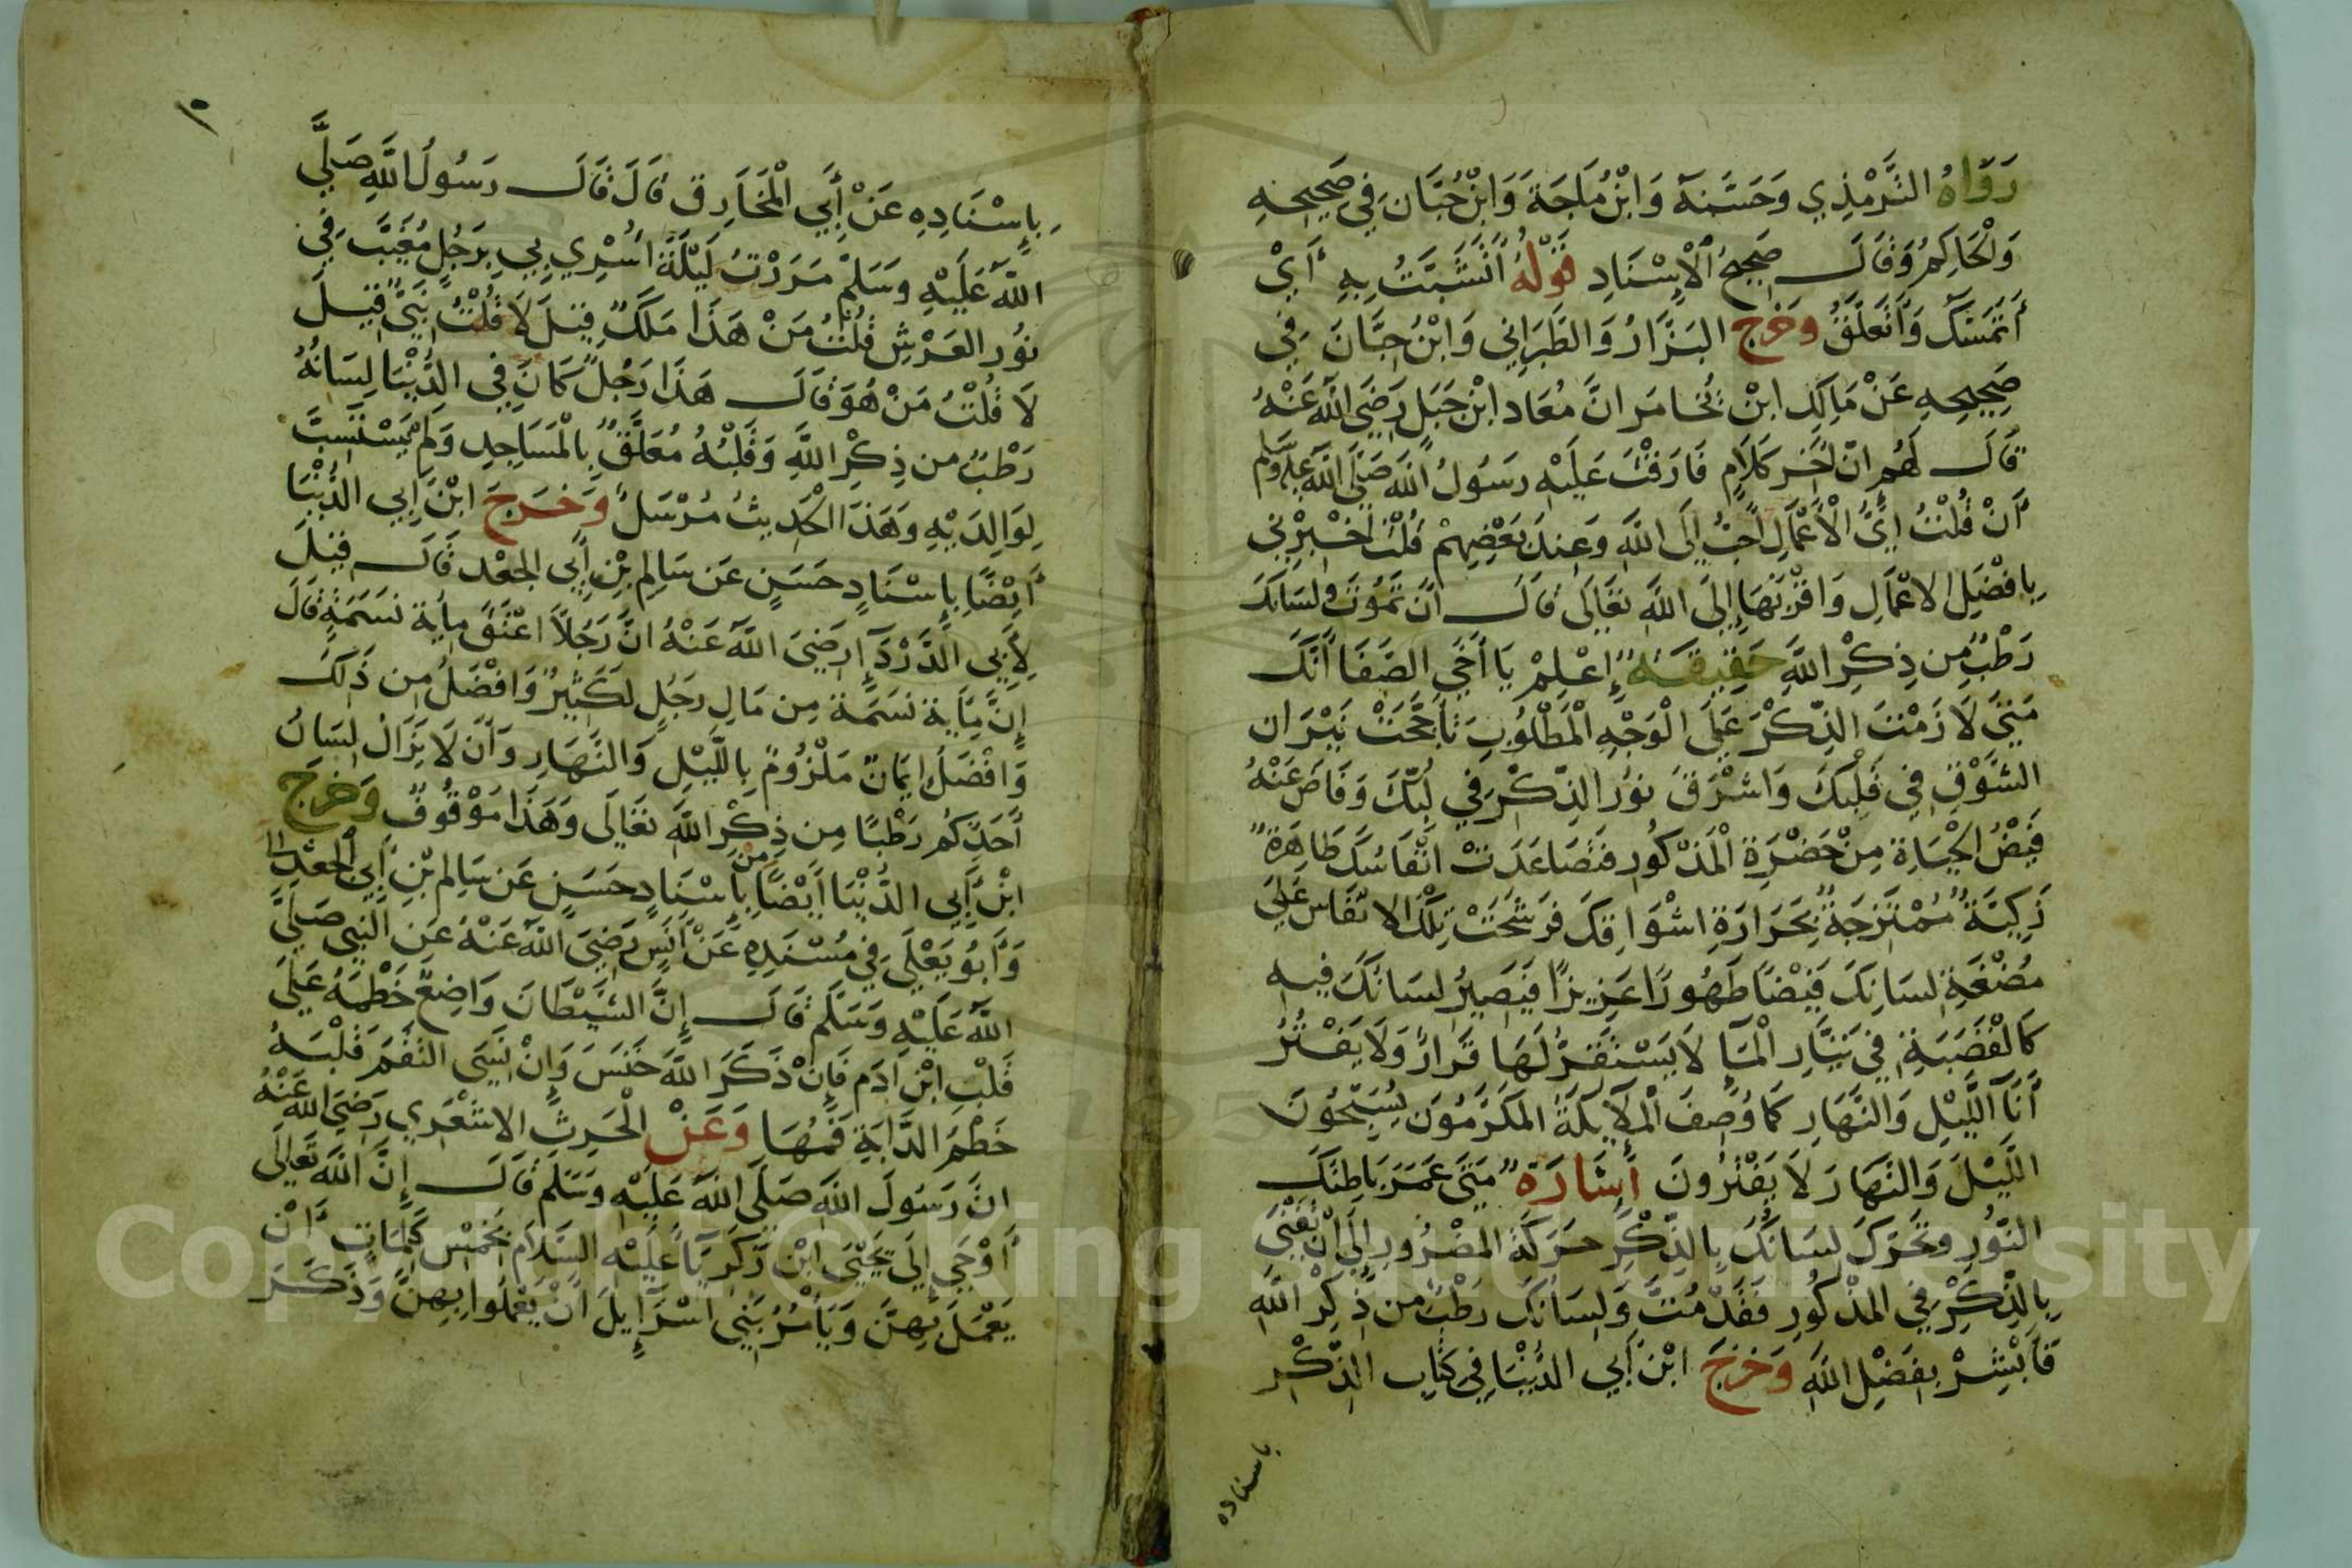 رَوَاهُ التَّرْمْذِي وَحَسَّنَهُ وَابْنُ مَاجَة وَابْنْ حُبَّان فِي صَحِيحِهِ
وَلْحَاكِمُ وَقَالَ صَحِيحُ الْإِسْنَادِ قَوْلُهُ أَتَشَبَّتُ بِهِ أَيْ
أَتَمَسَّكُ وَأَتَعَلَّقُ وخرج البَزَّارُ وَالطَّبَرَانِي وَابْنُ حِبَّانَ فِي
صَحِيحِهِ عَنْ مَالِكِ ابْن يُخَامَر انَّ مُعَاد ابْن جَبَل رَضِيَ اللَّه عَنْهُ
قَالَ لَهُم انّ اخَر كَلَامٍ فَارَقْتُ عَلَيْهِ رَسُولُ اللَّه صَلَّى اللَّه عليه وسلم
أَنْ قُلْتُ ايُّ الْأَعْمَالِ احَبُّ الَى اللَّهِ وَعِندَ بَعْضِهِمْ قُلْتُ اخْبِرْنِي
بِافْضَلِ الاعْمَالِ وَاقْرَبَهَا إِلَى اللَّهِ تَعَالَى قَالَ انْ تَمُوتَ ولسَانكَ
رَطْبٌ من ذِكْرِ اللَّهِ حَقِيقَةٌ إِعْلَمْ يَا أَخِي الصَّفَا أَنَّكَ
مَتَى لَازَمْتَ الذِّكْرَ عَلَى الْوَجْهِ الْمَطْلُوبِ تَأَجَّجَتْ نِيْرَان
الشَّوْقِ فِي قَلْبِكَ وَاشْرَقَ نوُر الذّكْرِ فِي لُبِّكَ وَفَاضَ عَنْهُ
فَيْضُ الْحَيَاة مِنْ حَضْرَةِ الْمَذْكُورِ فتَصَاعَدَتْ انْفَاسُكَ طَاهِرَةً
زَكِيَّةً مُمْتَزجَةً بِحَرَارَةِ اشْوَاقِكَ فَرَشَحَتْ تِلْكَ الانْفَاس عَلَى
مُضْغَةِ لسَانِكَ فَيْضًا طَهُورًا عَزِيزًا فَيَصِيرُ لسَانكَ فِيهِ
كَالْقَصَبَةِ فِي تَيَّارِ الْمَآءِ لَا يَسْتَقِرُّ لَهَا قَرَارٌ وَلَا يَفْتُرُ
أنَآ اللَّيْلِ وَالنَّهَارِ كَمَا وُصِفَ الْمَلَايِكَةُ المَكَرَّمُوَن يُسَبِّحُونَ
اللَّيْلَ وَالنَّهَارَ لَا يَفْتُرُونَ أَشَارَةٌ مَتَى عَمَرَ بَاطِنَكَ
النّوُرِ وتَحَرّكَ لسَانكَ بِالذِّكْرِ حَرَكَةَ المَضْرُورِ إِلَى أَنْ تَفْنَى
بِالذِّكْرِ فِي المَذْكُورِ فَقَدْ مُتَّ وَلِسَانكَ رَطْبٌ من ذِكْرِ اللَّهِ
فَأَبْشِرْ بِفَضْلِ اللَّهِ وَخَرَّجَ ابْن أَبِي الدُّنْيَا فِي كتَابِ الذِّكْر
باسناده
١٠
بِإِسْنَادِهِ عَنْ أَبِي الْمُخَارِق قَالَ قَالَ رَسُولُ اللَّهِ صَلَّى
اللَّه عَلَيْهِ وَسَلَّمْ مَرَرْتُ لَيْلَةَ اسْرِي بِي بِرَجُلٍ مُغَيَّبَ فِي
نوُر العَرْشِ قُلْتُ مَنْ هَذَا مَلَكٌ قِيْلَ لَا قُلْتُ نَبِيٌّ قِيْلَ
لَا قُلْتُ مَنْ هُوَ قَالَ هَذَا رَجُلٌ كَانَ فِي الدُّنْيَا لِسَانُهُ
رَطْبٌ من ذِكْرِ اللَّهِ وَقَلْبُهُ مُعَلَّقٌ بِالْمَسَاجِدِ وَلَمْ يَسْتَسِبَّ
لِوَالِدَيْهِ وَهَذَا الْحَدِيثُ مُرْسَلٌ وَخَرَجَ ابْن أَبِي الدُّنْيَا
أَيْضًا بِإِسْنَادٍ حَسَنٍ عَن سَالِم بْنِ أَبِي الجَعْد قَالَ قِيْلَ
لِأَبِي الدَّرْدَآءِ رَضِيَ اللَّه عَنْهُ انَّ رَجُلاً اعْتَقَ مِأية نَسَمَةٍ قَالَ
إِنَّ مِأَية نسَمَة مِن مَالِ رَجُلٍ لَكَثِيرٌ وَافْضَلُ من ذَلِكَ
وَافْضَلُ ايمَانٌ مَلْزُومٌ بِاللَّيْلِ وَالنَّهَارِ وَأَن لَا يَزَالْ لِسَانُ
أَحَدِكُم رَطْبًا مِن ذِكْرِ اللَّهِ تَعَالَى وَهَذَا مَوْقُوفٌ وَخَرَجَ
ابْن أَبِي الدُّنْيَا أَيْضًا بِإِسْنَادٍ حَسَنٍ عَن سَالِم بْنِ أَبِي الْجَعْد
وَأَبُو يَعْلَى فِي مُسْنَدِهِ عَنْ أَنَسٍ رَضِيَ اللَّه عَنْهُ عَنِ النَّبِي صَلَّى
اللَّه عَلَيْهِ وَسَلَّم قَالَ إِنَّ الشَّيْطَانَ وَاضِعٌ خَطْمَهُ عَلَى
قَلْبِ ابْن آدَم فَإِنْ ذَكَرَ اللَّهَ خَنَسَ وَإِنْ نَسِيَ التَقَمَ قَلْبَهُ
خَطْمَ الدَّابَةِ فَمُّهَا وَعَنْ الْحَرِثِ الاشْعَرِي رَضِيَ اللَّه عَنْهُ
انَّ رَسُولَ اللَّه صَلَّى اللَّه عَلَيْهِ وَسَلَّم قَالَ إِنَّ اللَّه تَعَالَى
أَوْحَى إِلَى يَحْيَى ابْن زَكَرِيَّا عَلَيْهِ السَّلَام بِخَمْسِ كَلِمَاتٍ أَنْ
يَعْمَلَ بِهِنَّ وَيَأْمُرُ بَنِي اسْرَآئِيلَ انْ يَعْمَلُوا بِهِنَّ وَذَكَرَ
Copyright © King Saud University